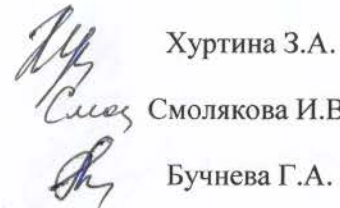 Хуртина З.А.
Смолякова И.В
Бучнева Г.А.